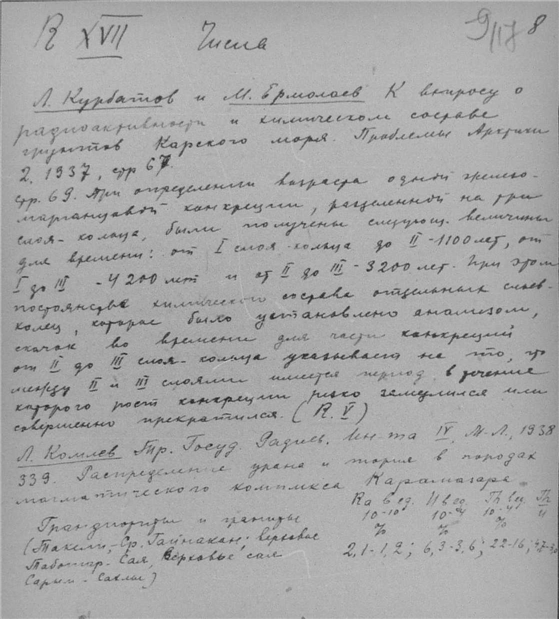 R XVII Числа 9/17 8
Л. Курбатов и М. Ермолаев К вопросу о
радиоактивности и химическом составе
грунтов Карского моря. Проблемы Арктики
2, 1937, стр 67.
стр. 69. При определении возраста одной железо-
марганцовой конкреции, разделенной на три
слоя-кольца, были получены следующ. величины
для времени: от I слоя-кольца до II -1100 лет, от
I до III -4200 лет и от II до III -3200 лет. При этом
постоянстве химического состава отдельных слоев-
колец, которое было установлено анализом,
скачок во времени для части конкреций
от II до III слоя-кольца указывает на то, что
между II и III слоями имеется период, в течение
которого рост конкреции резко замедлился или
совершенно прекратился. (R. V)
Л. Комлев Тр. Госуд. Радиев. Ин-та IV, М-Л, 1938
339. Распределение урана и тория в породах
магматического комплекса Карамазара
Ra в ед. U в ед. Th в ед. Th
Гранодиориты и граниты 10-10 10-4 10-4 U
% % %
(Такели, Ср. Гайнакан, Верховье
Табошар-Сая, Верховье сая 2,1-1,2; 6,3-3,6; 22-16;
Сарым-Саклы)